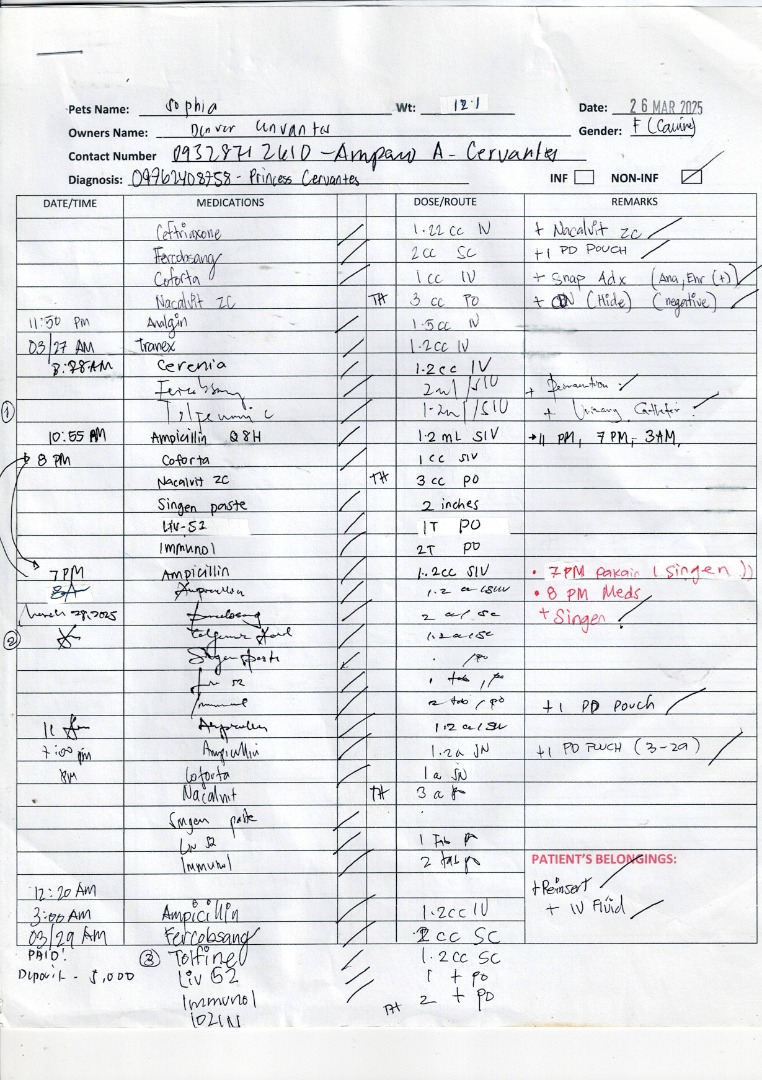 Pets Name: Sophia Wt: 12.1 Date: 26 MAR 2025
Owners Name: Gender: F (Canine)
Contact Number 09328712610 - Amparo A - Cervantes
Diagnosis: 09762408758 - Princess Cervantes INF NON-INF
DATE/TIME MEDICATIONS DOSE/ROUTE REMARKS
Ceftriaxone 1.22 cc IV + Nacalvit ZC
Fercobsang 2 cc SC +1 PD POUCH
Coforta 1 cc IV + Snap Adx (Ana, Ehr (+)
Nacalvit ZC TH 3 cc PO + (negative)
11:50 PM Analgin 1.5 cc IV
03/27 AM Tranex 1.2cc IV
8:28AM Cerenia 1.2cc IV
2ml /SIV
① 1.2ml /SIV + Urinary Catheter
10:55 AM Ampicillin Q8H 1.2 mL SIV → 11 PM, 7 PM, 3AM,
8 PM Coforta 1 cc SIV
Nacalvit ZC TH 3 cc PO
Singen paste 2 inches
Liv-52 1T PO
Immunol 2T PO
7PM Ampicillin 1.2cc SIV • 7PM pakain (Singen))
8A • 8 PM Meds
March 28, 2025 + Singen
②
Singen paste /po
52 1 tab / po
Immunol 2 tab / po +1 PD Pouch
11
7:00 pm Ampicillin +1 PD POUCH (3-29)
8PM Coforta
Nacalvit TH
Singen paste
Liv 52 1 Tab
Immunol 2 tab PATIENT'S BELONGINGS:
12:20 AM + Reinsert
3:00 AM Ampicillin 1.2cc IV + IV Fluid
03/29 AM Fercobsang 2 cc SC
PAID! ③ Tolfine 1.2cc SC
Deposit - 5,000 Liv 52 1 t po
Immunol TH 2 t PO